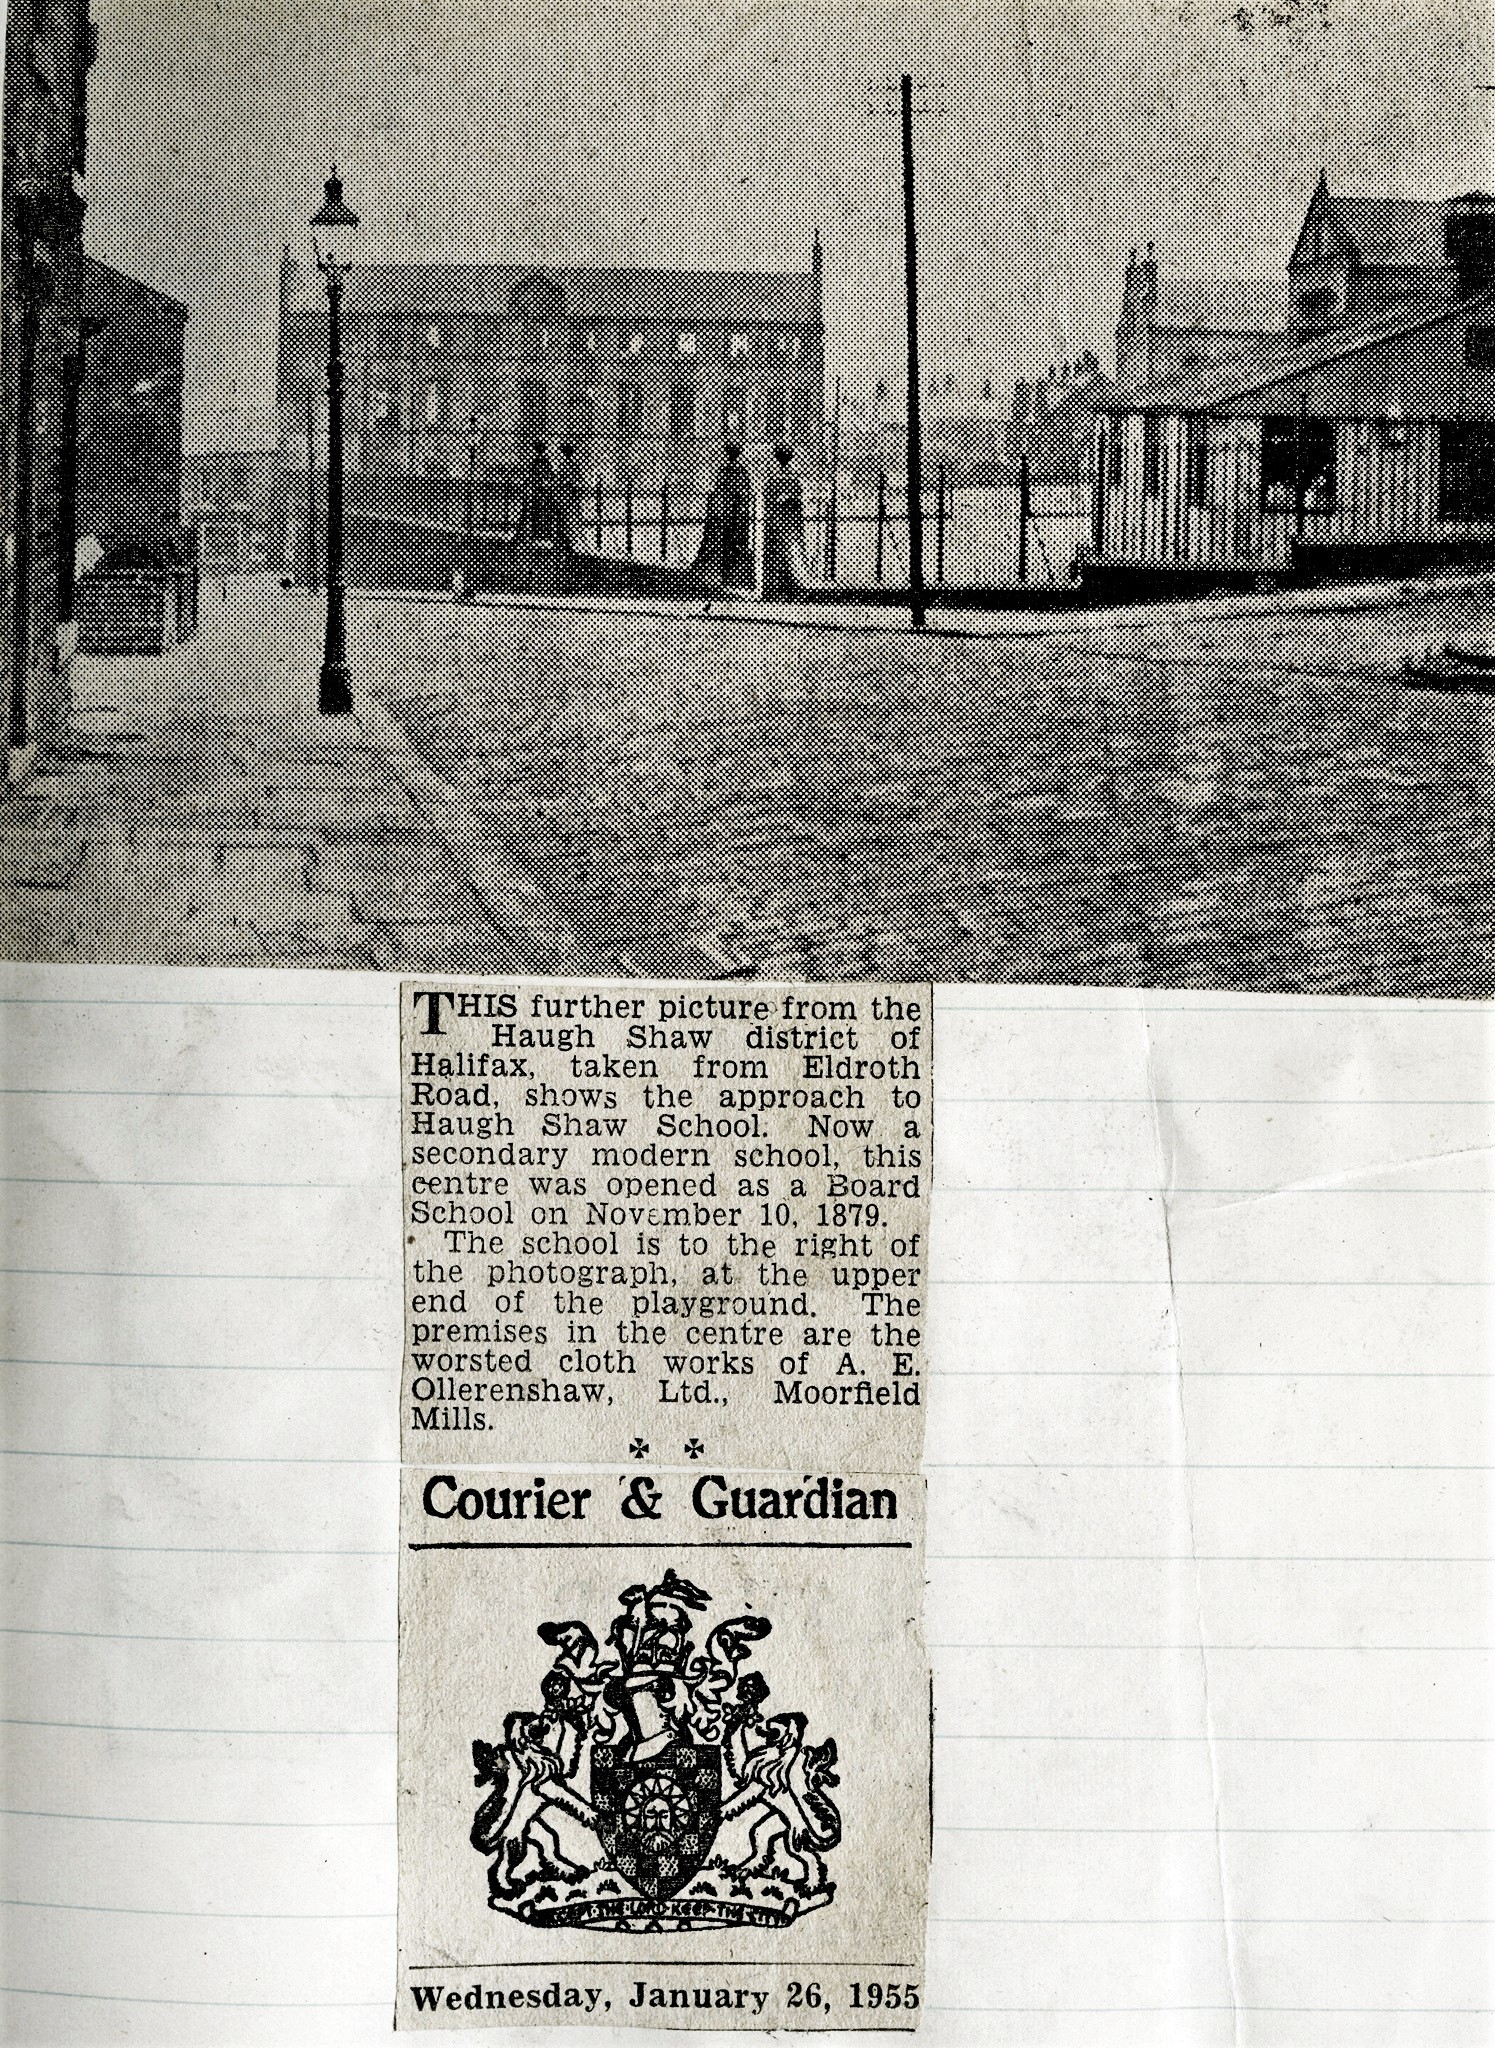 THIS further picture from the
Haugh Shaw district of
Halifax, taken from Eldroth
Road, shows the approach to
Haugh Shaw School. Now a
secondary modern school, this
centre was opened as a Board
School on November 10, 1879.
The school is to the right of
the photograph, at the upper
end of the playground. The
premises in the centre are the
worsted cloth works of A. E.
Ollerenshaw, Ltd., Moorfield
Mills.
Courier & Guardian
THE LORD KEEP THE CITY
Wednesday, January 26, 1955